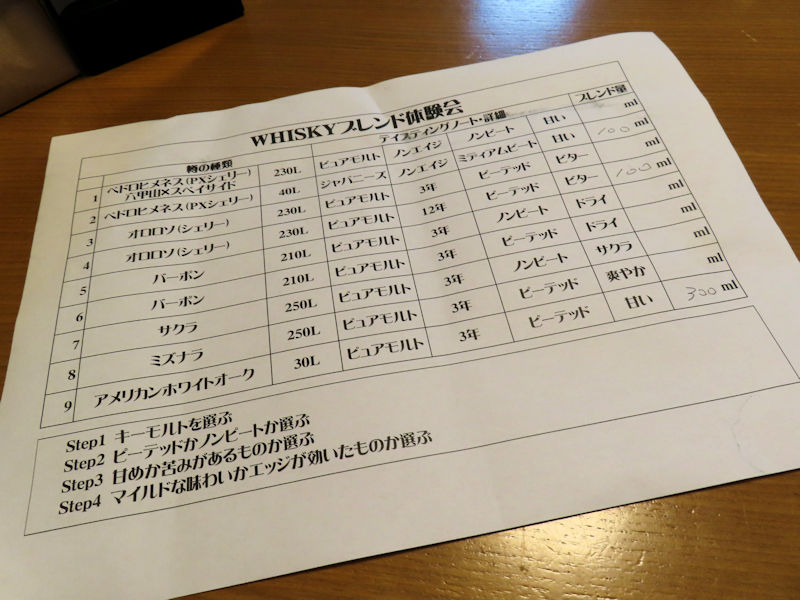 WHISKYブレンド体験会
樽の種類 テイスティングノート・詳細 ブレンド量
1 ペドロヒメネス(PXシェリー) 230L ピュアモルト ノンエイジ ノンピート 甘い ml
六甲山×スペイサイド
2 ペドロヒメネス(PXシェリー) 40L ジャパニーズ ノンエイジ ミディアムピート 甘い 100 ml
3 オロロソ(シェリー) 230L ピュアモルト 3年 ピーテッド ビター ml
4 オロロソ(シェリー) 230L ピュアモルト 12年 ピーテッド ビター 100 ml
5 バーボン 210L ピュアモルト 3年 ノンピート ドライ ml
6 バーボン 210L ピュアモルト 3年 ピーテッド ドライ ml
7 サクラ 250L ピュアモルト 3年 ノンピート サクラ ml
8 ミズナラ 250L ピュアモルト 3年 ピーテッド 爽やか ml
9 アメリカンホワイトオーク 30L ピュアモルト 3年 ピーテッド 甘い 300 ml
Step1 キーモルトを選ぶ
Step2 ピーテッドかノンピートか選ぶ
Step3 甘めか苦みがあるものか選ぶ
Step4 マイルドな味わいかエッジが効いたものか選ぶ